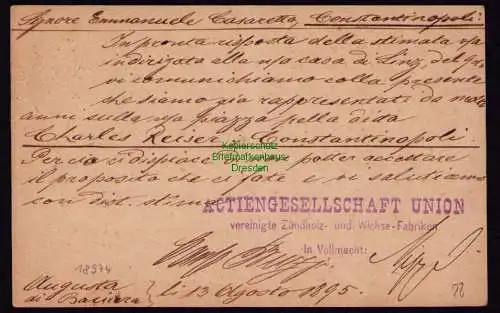 Signore Emmanuele Casaretto, Constantinopoli.
In pronta risposta della stimata vsa
indirizata alla nsa casa di Linz, del
vi comunichiamo colla presente
che siamo già rappresentati da molti
anni sulla nsa piazza della ditta
Charles Reiser, Constantinopoli.
Perciò ci dispiace non poter accettare
il proposito che ci fate e vi salutiamo
con dist. stima
Kepierschutz
Briefmarkenhaus
Dresden
ACTIENGESELLSCHAFT UNION
vereinigte Zündholz- und Wichse-Fabriken
In Vollmacht:
18974
Augusta
di Baviera
li 13 Agosto 1895.